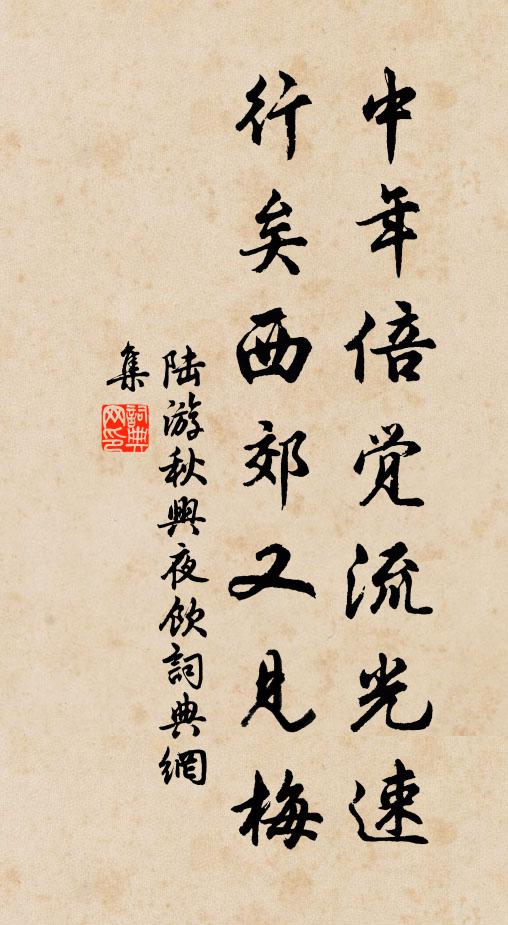 中年倍觉流光速
行矣西郊又见梅
陆游秋興夜飲詞典網
集
詞典
网印